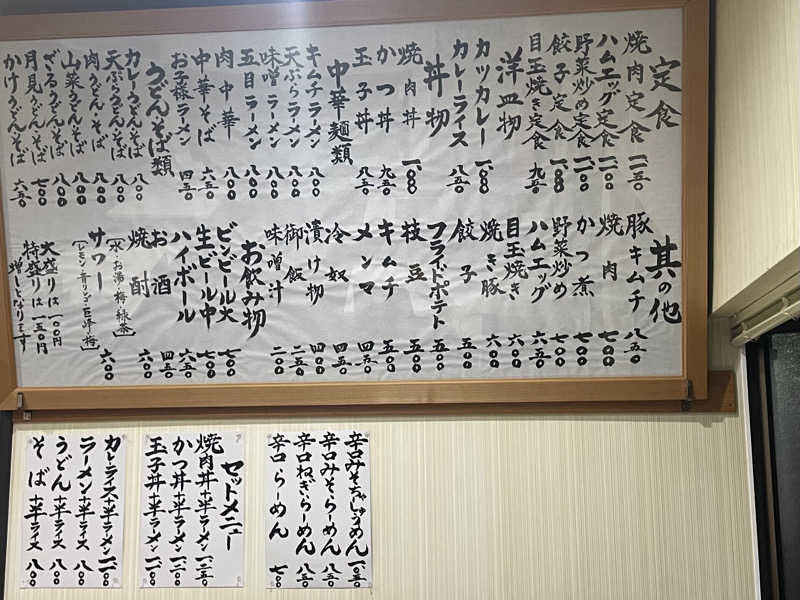 定食
焼肉定食 一二五〇
ハムエッグ定食 一一〇〇
野菜炒め定食 一一〇〇
餃子定食 一〇〇〇
目玉焼き定食 九五〇
洋皿物
カツカレー 一〇〇〇
カレーライス 八五〇
丼物
焼肉丼 一一〇〇
かつ丼 九五〇
玉子丼 八五〇
中華麺類
キムチラーメン 八〇〇
天ぷらラーメン 八〇〇
味噌ラーメン 八〇〇
五目ラーメン 八〇〇
肉中華 八〇〇
中華そば 六五〇
お子様ラーメン 四五〇
うどんそば類
カレーうどん・そば 八〇〇
天ぷらうどん・そば 八〇〇
肉うどん・そば 八〇〇
山菜うどん・そば 八〇〇
ざるうどん・そば 八〇〇
月見うどん・そば 七〇〇
かけうどん・そば 六五〇
其の他
豚キムチ 八五〇
焼肉 七〇〇
かつ煮 七〇〇
野菜炒め 七〇〇
ハムエッグ 六五〇
目玉焼き 六〇〇
焼き豚 六〇〇
餃子 五〇〇
フライドポテト 五〇〇
枝豆 五〇〇
キムチ 五〇〇
メンマ 四五〇
冷奴 四五〇
漬け物 四〇〇
御飯 二五〇
味噌汁 二〇〇
お飲み物
ビンビール大 七〇〇
生ビール中 七〇〇
ハイボール 六五〇
お酒 四五〇
焼酎 六〇〇
(水・お湯・梅・緑茶)
サワー 六〇〇
(レモン・青リンゴ・巨峰・梅)
大盛りは一〇〇円
特盛りは一五〇円
増しになります
辛口みそちゃしゅうめん 一〇五〇
辛口みそらーめん 八五〇
辛口ねぎらーめん 八五〇
辛口らーめん 七〇〇
セットメニュー
焼肉丼+半ラーメン 一三五〇
かつ丼+半ラーメン 一二〇〇
玉子丼+半ラーメン 一一〇〇
カレーライス+半ラーメン 一一〇〇
ラーメン+半ライス 八〇〇
うどん+半ライス 八〇〇
そば+半ライス 八〇〇